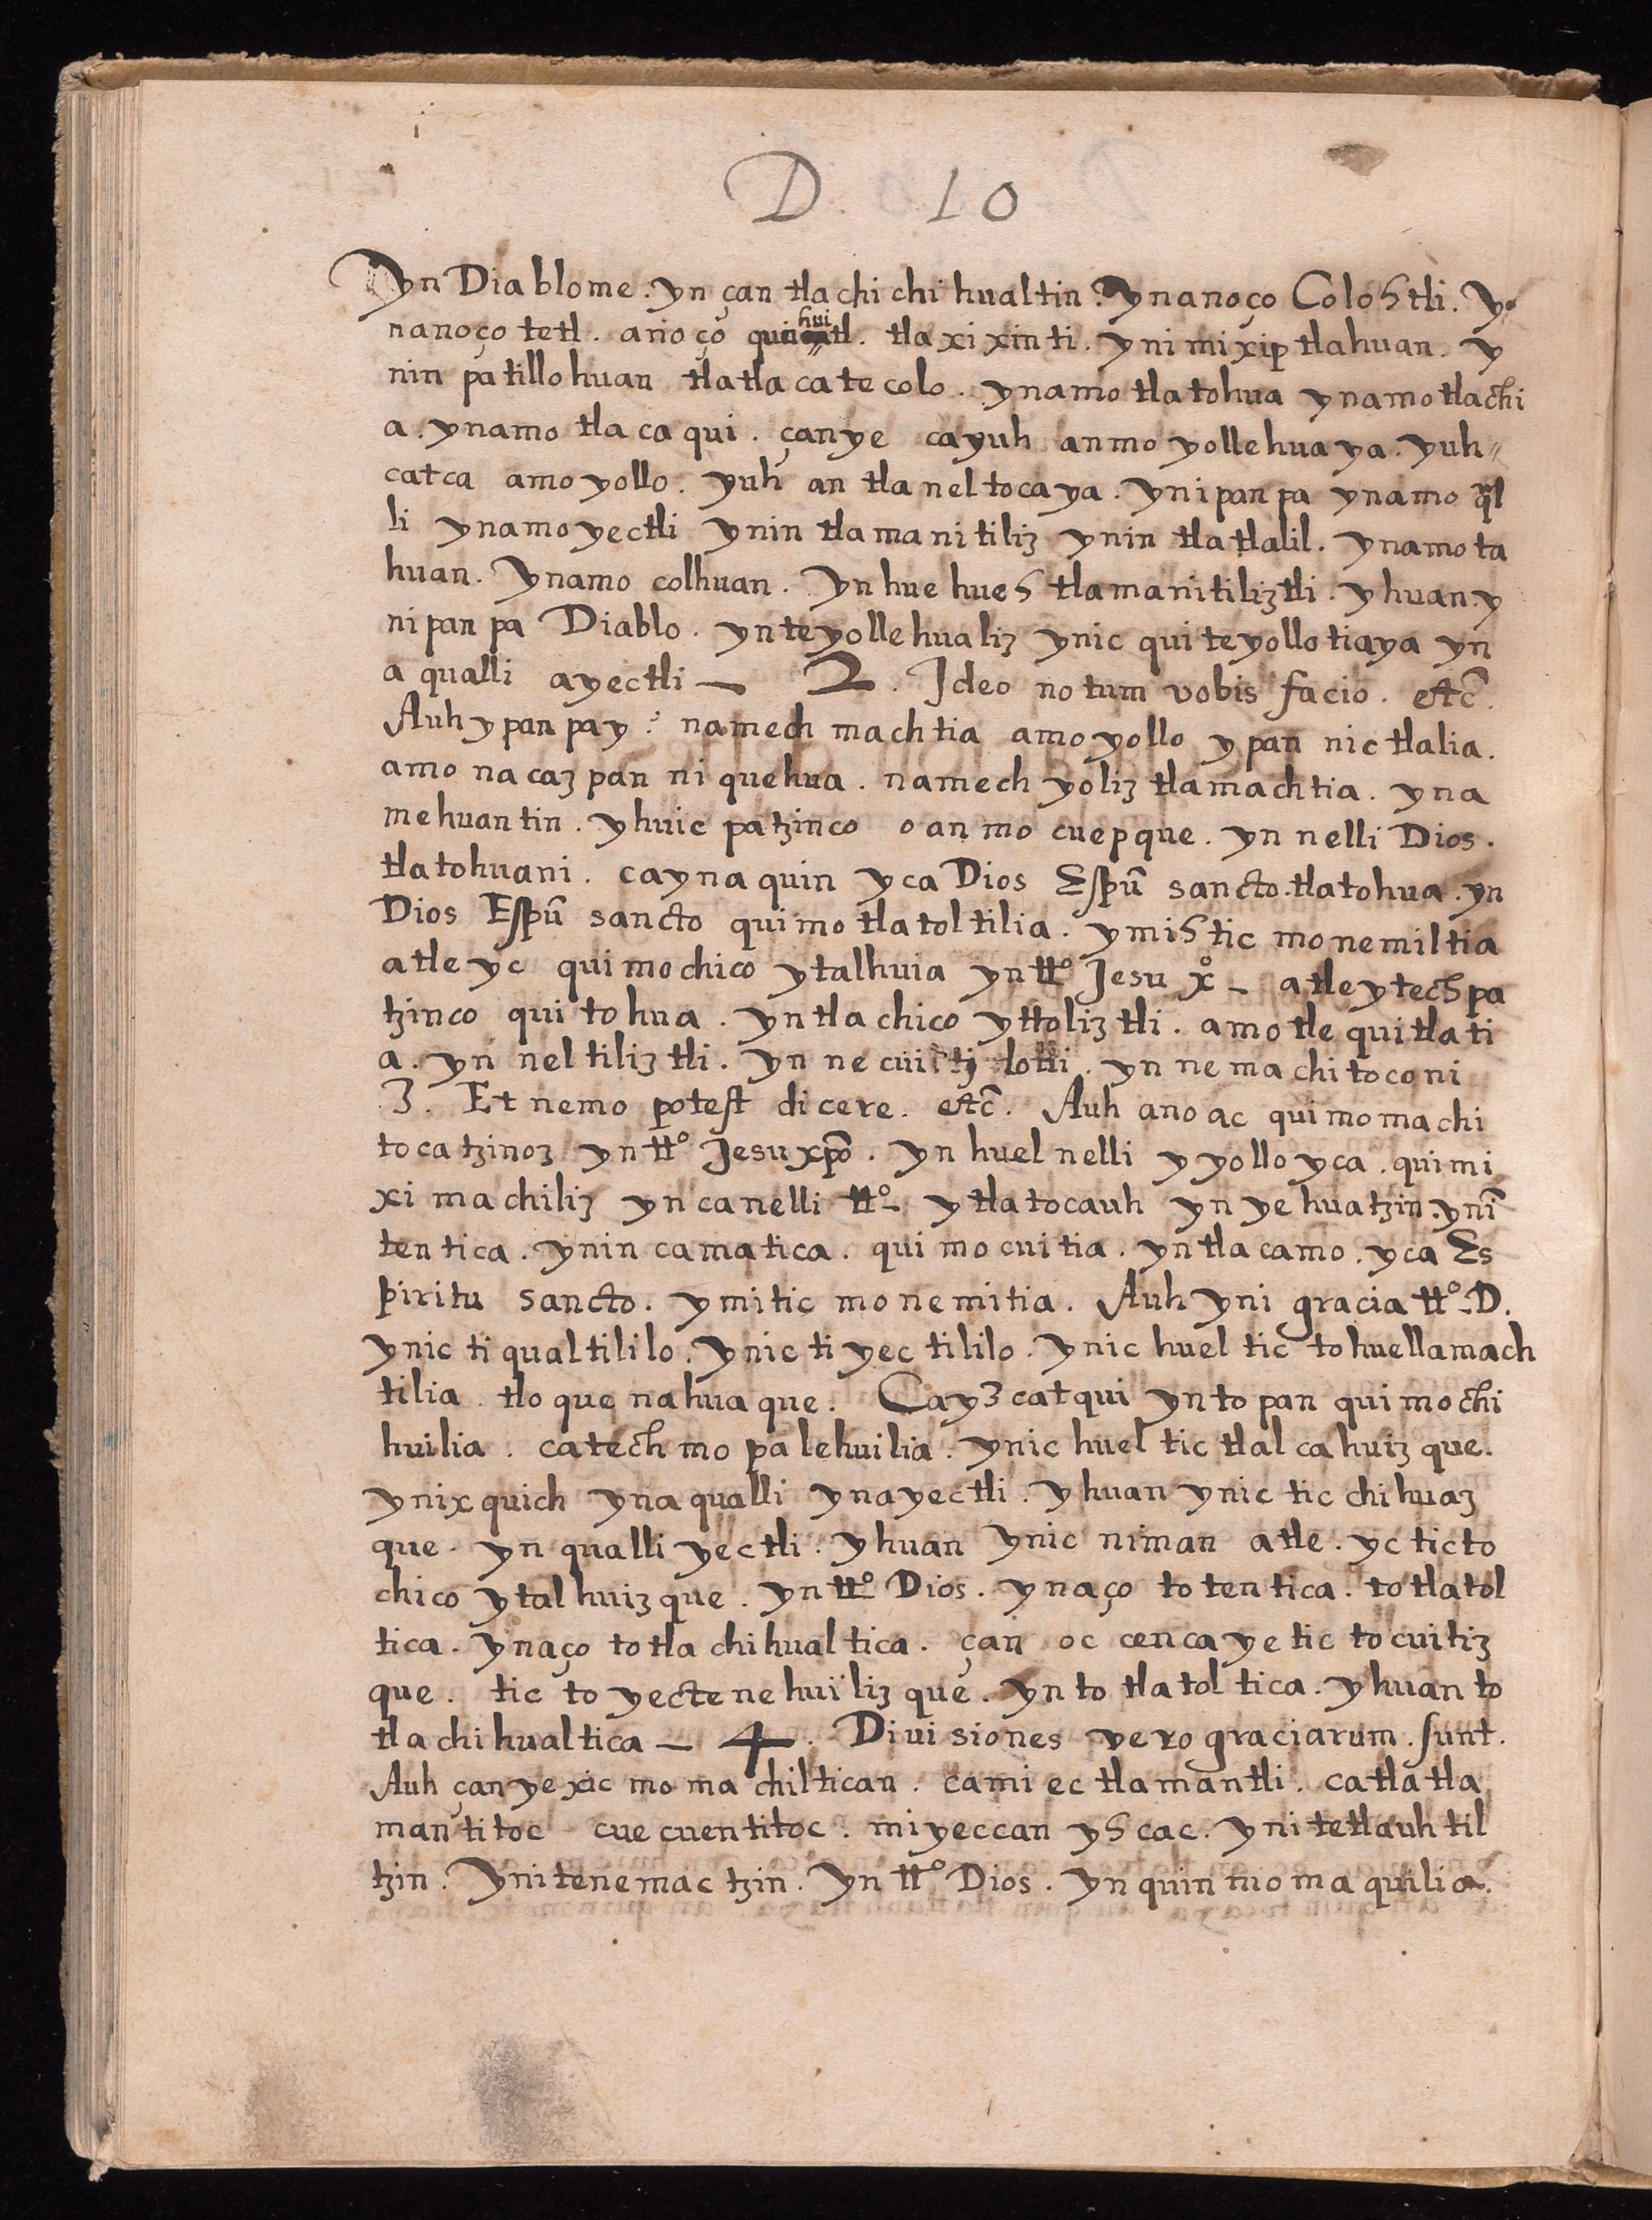 D. 10
Yn Diablome. yn çan tlachichihualtin. Ynanoço Colostli. Y
nanoço tetl. anoço quahuitl. tlaxixinti. ynimixiptlahuan. y
nin patillohuan tlatlacatecolo. ynamo tlatohua ynamo tlachi
a. ynamo tlacaqui. çanye cayuh anmoyollehuaya. yuh
catca amoyollo. yuh antlaneltocaya. ynipanpa ynamo ql
li ynamo yectli ynin tlamanitiliz ynin tlatlalil. ynamota
huan. Ynamo colhuan. Yn huehues tlamanitiliztli. yhuan. y
nipanpa Diablo. ynteyollehualiz ynic quiteyollotiaya yn
aqualli ayectli — 2. Ideo notum vobis facio. etc̃.
Auh ypanpay: namech machtia amoyollo ypan nictlalia.
amonacazpan niquehua. namech yoliztlamachtia. yna
mehuantin. yhuicpatzinco oanmocuepque. yn nelli Dios.
tlatohuani. caynaquin yca Dios Espũ sancto. tlatohua. yn
Dios Espũ sancto quimotlatoltilia. ymistic monemiltia
atle yc quimochico ytalhuia yn tt.º Jesu x.º — atle ytechpa
tzinco quitohua. yn tlachico yttoliztli. amotle quitlati
a. yn neltiliztli. yn necuiltilotli. yn nemachitoconi
3. Et nemo potest dicere. etc̃. Auh ano ac quimomachi
tocatzinoz yn tt.º Jesu xpõ. yn huel nelli yyolloyca. quimi
ximachiliz yn canelli tt.º — ytlatocauh yn yehuatzin. ynĩ
tentica. ynin camatica. quimocuitia. yntlacamo. yca Es
piritu sancto. ymitic monemitia. Auh yni gracia tt.º D.
ynic tiqualtililo. ynic tiyectililo. ynic huel tictohuellamach
tilia tloque nahuaque. Cay3catqui yn topan quimochi
huilia. catechmopalehuilia. ynic huel tictlalcahuizque.
ynixquich ynaqualli ynayectli. yhuan ynic ticchihuaz
que. yn qualli yectli. yhuan ynic niman atle. yc ticto
chico ytalhuizque. yn tt.º Dios. ynaço totentica. totlatol
tica. ynaço totlachihualtica. çan oc cencaye tictocuitiz
que. tictoyectenehuilizque. yn totlatoltica. yhuan to
tlachihualtica — 4. Diuisiones vero graciarum. sunt.
Auh çanyexicmomachiltican. camiec tlamantli. catlatla
mantitoc cuecuentitoc. miyeccan yscac. ynitetlauhtil
tzin. Ynitenemactzin. Yn tt.º Dios. Yn quinmomaquilia.